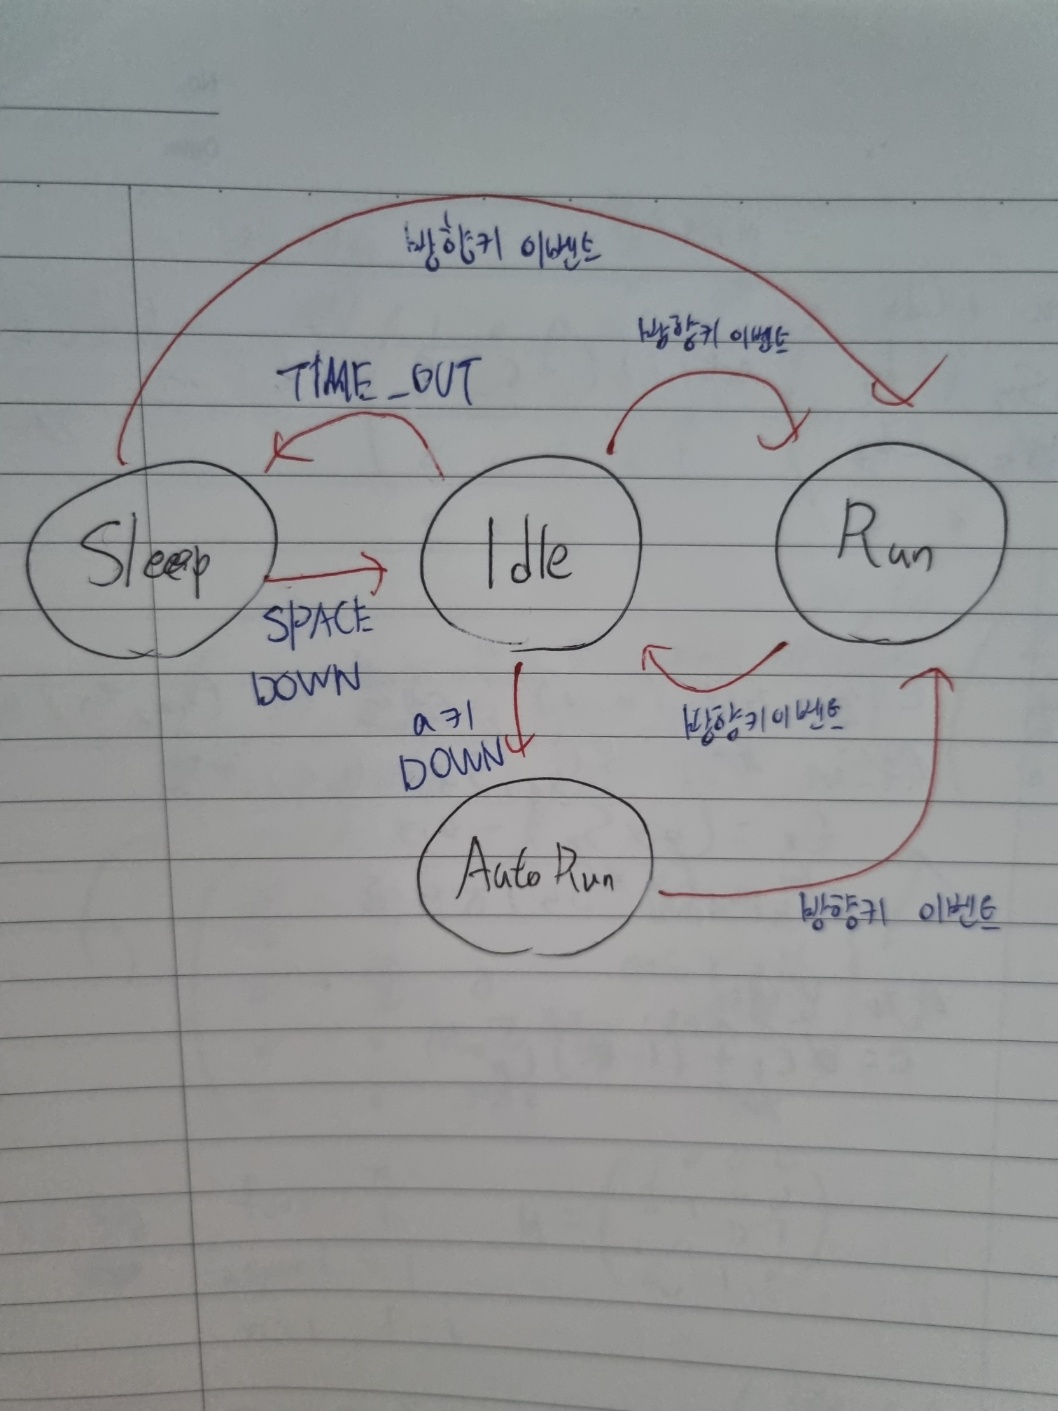 방향키 이벤트
방향키 이벤트
TIME_OUT
Sleep
Idle
Run
SPACE
DOWN
a키
DOWN
방향키 이벤트
Auto Run
방향키 이벤트